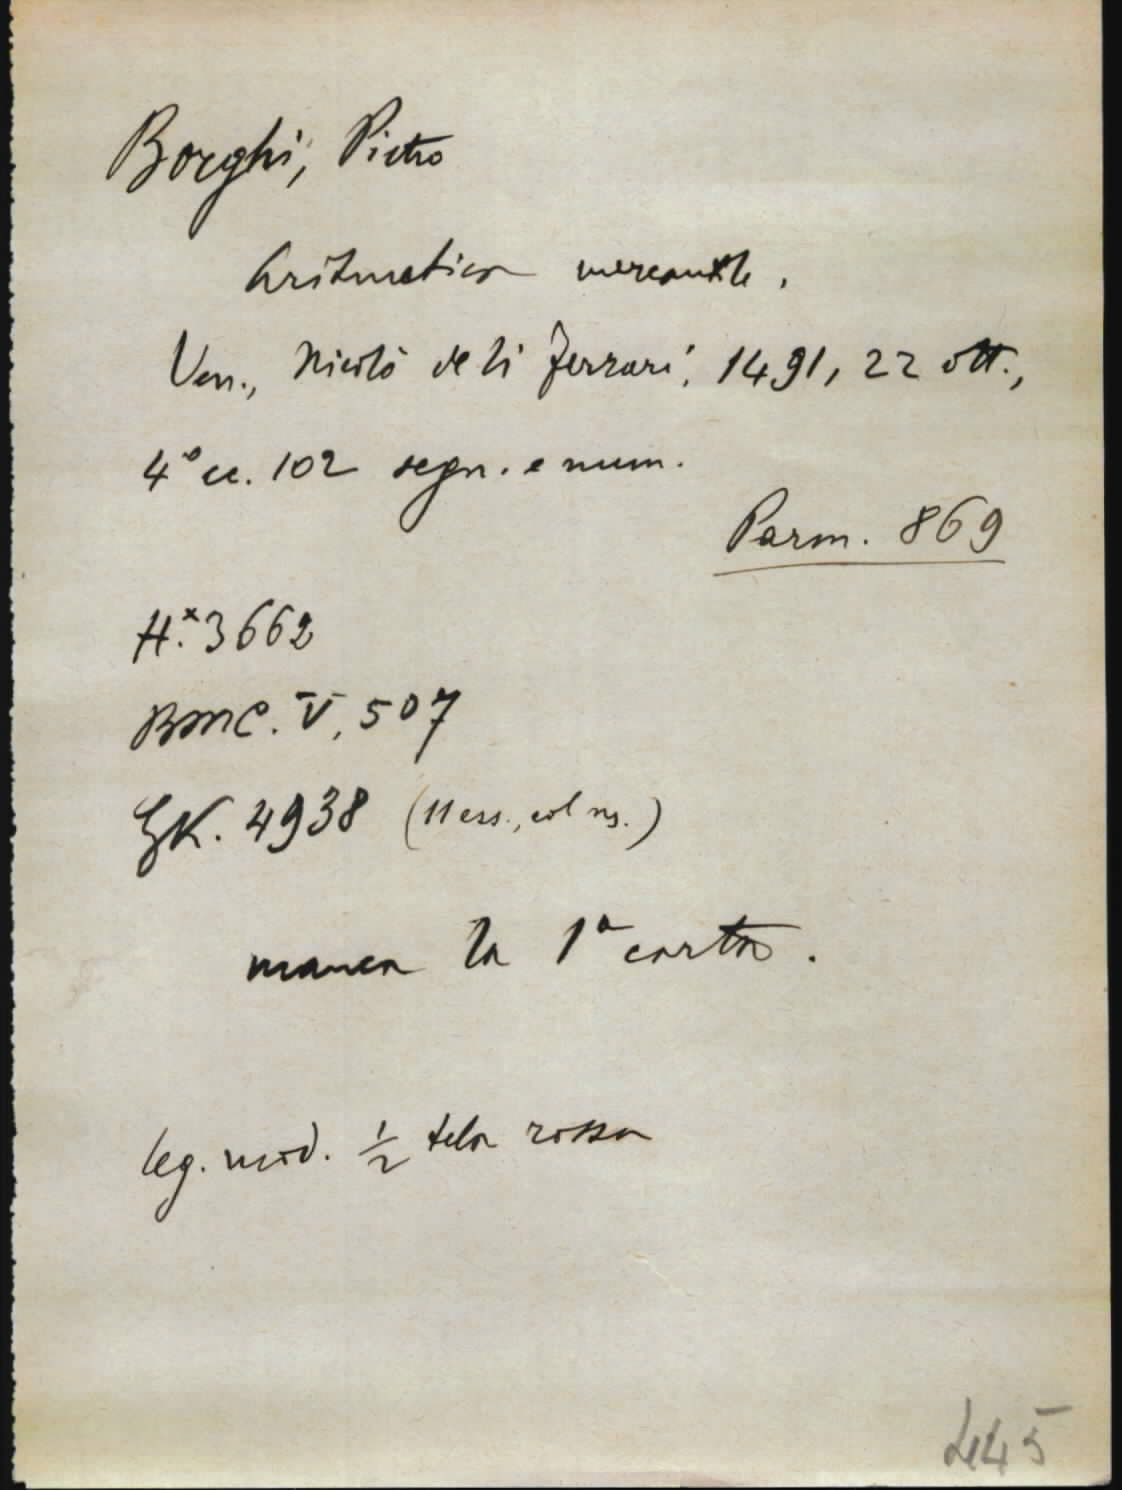 Borghi, Pietro
Aritmetica mercantile.
Ven., Nicolò de li Ferrari, 1491, 22 ott.,
4° cc. 102 segn. e num.
Parm. 869
H.* 3662
BMC. V, 507
GK. 4938 (11 ess., col ns.)
manca la 1ª carta.
leg. mod. ½ tela rossa